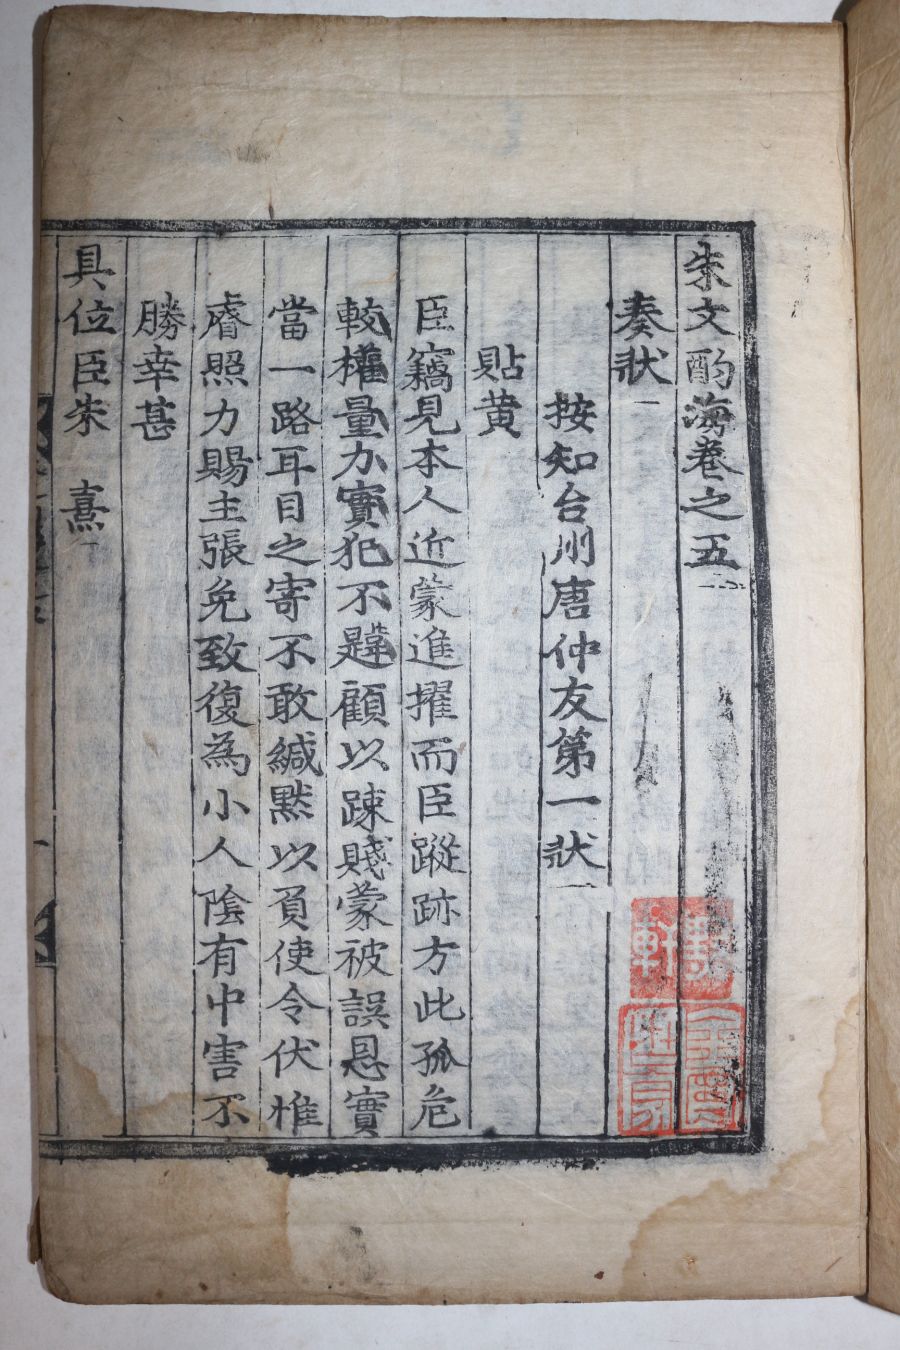 朱文酌海卷之五
奏狀
按知台州唐仲友第一狀
貼黃
臣竊見本人近蒙進擢而臣蹤跡方此孤危
較權量力實犯不韙顧以踈賤蒙被誤恩實
當一路耳目之寄不敢緘默以負使令伏惟
睿照力賜主張免致復為小人陰有中害不
勝幸甚
具位臣朱 熹